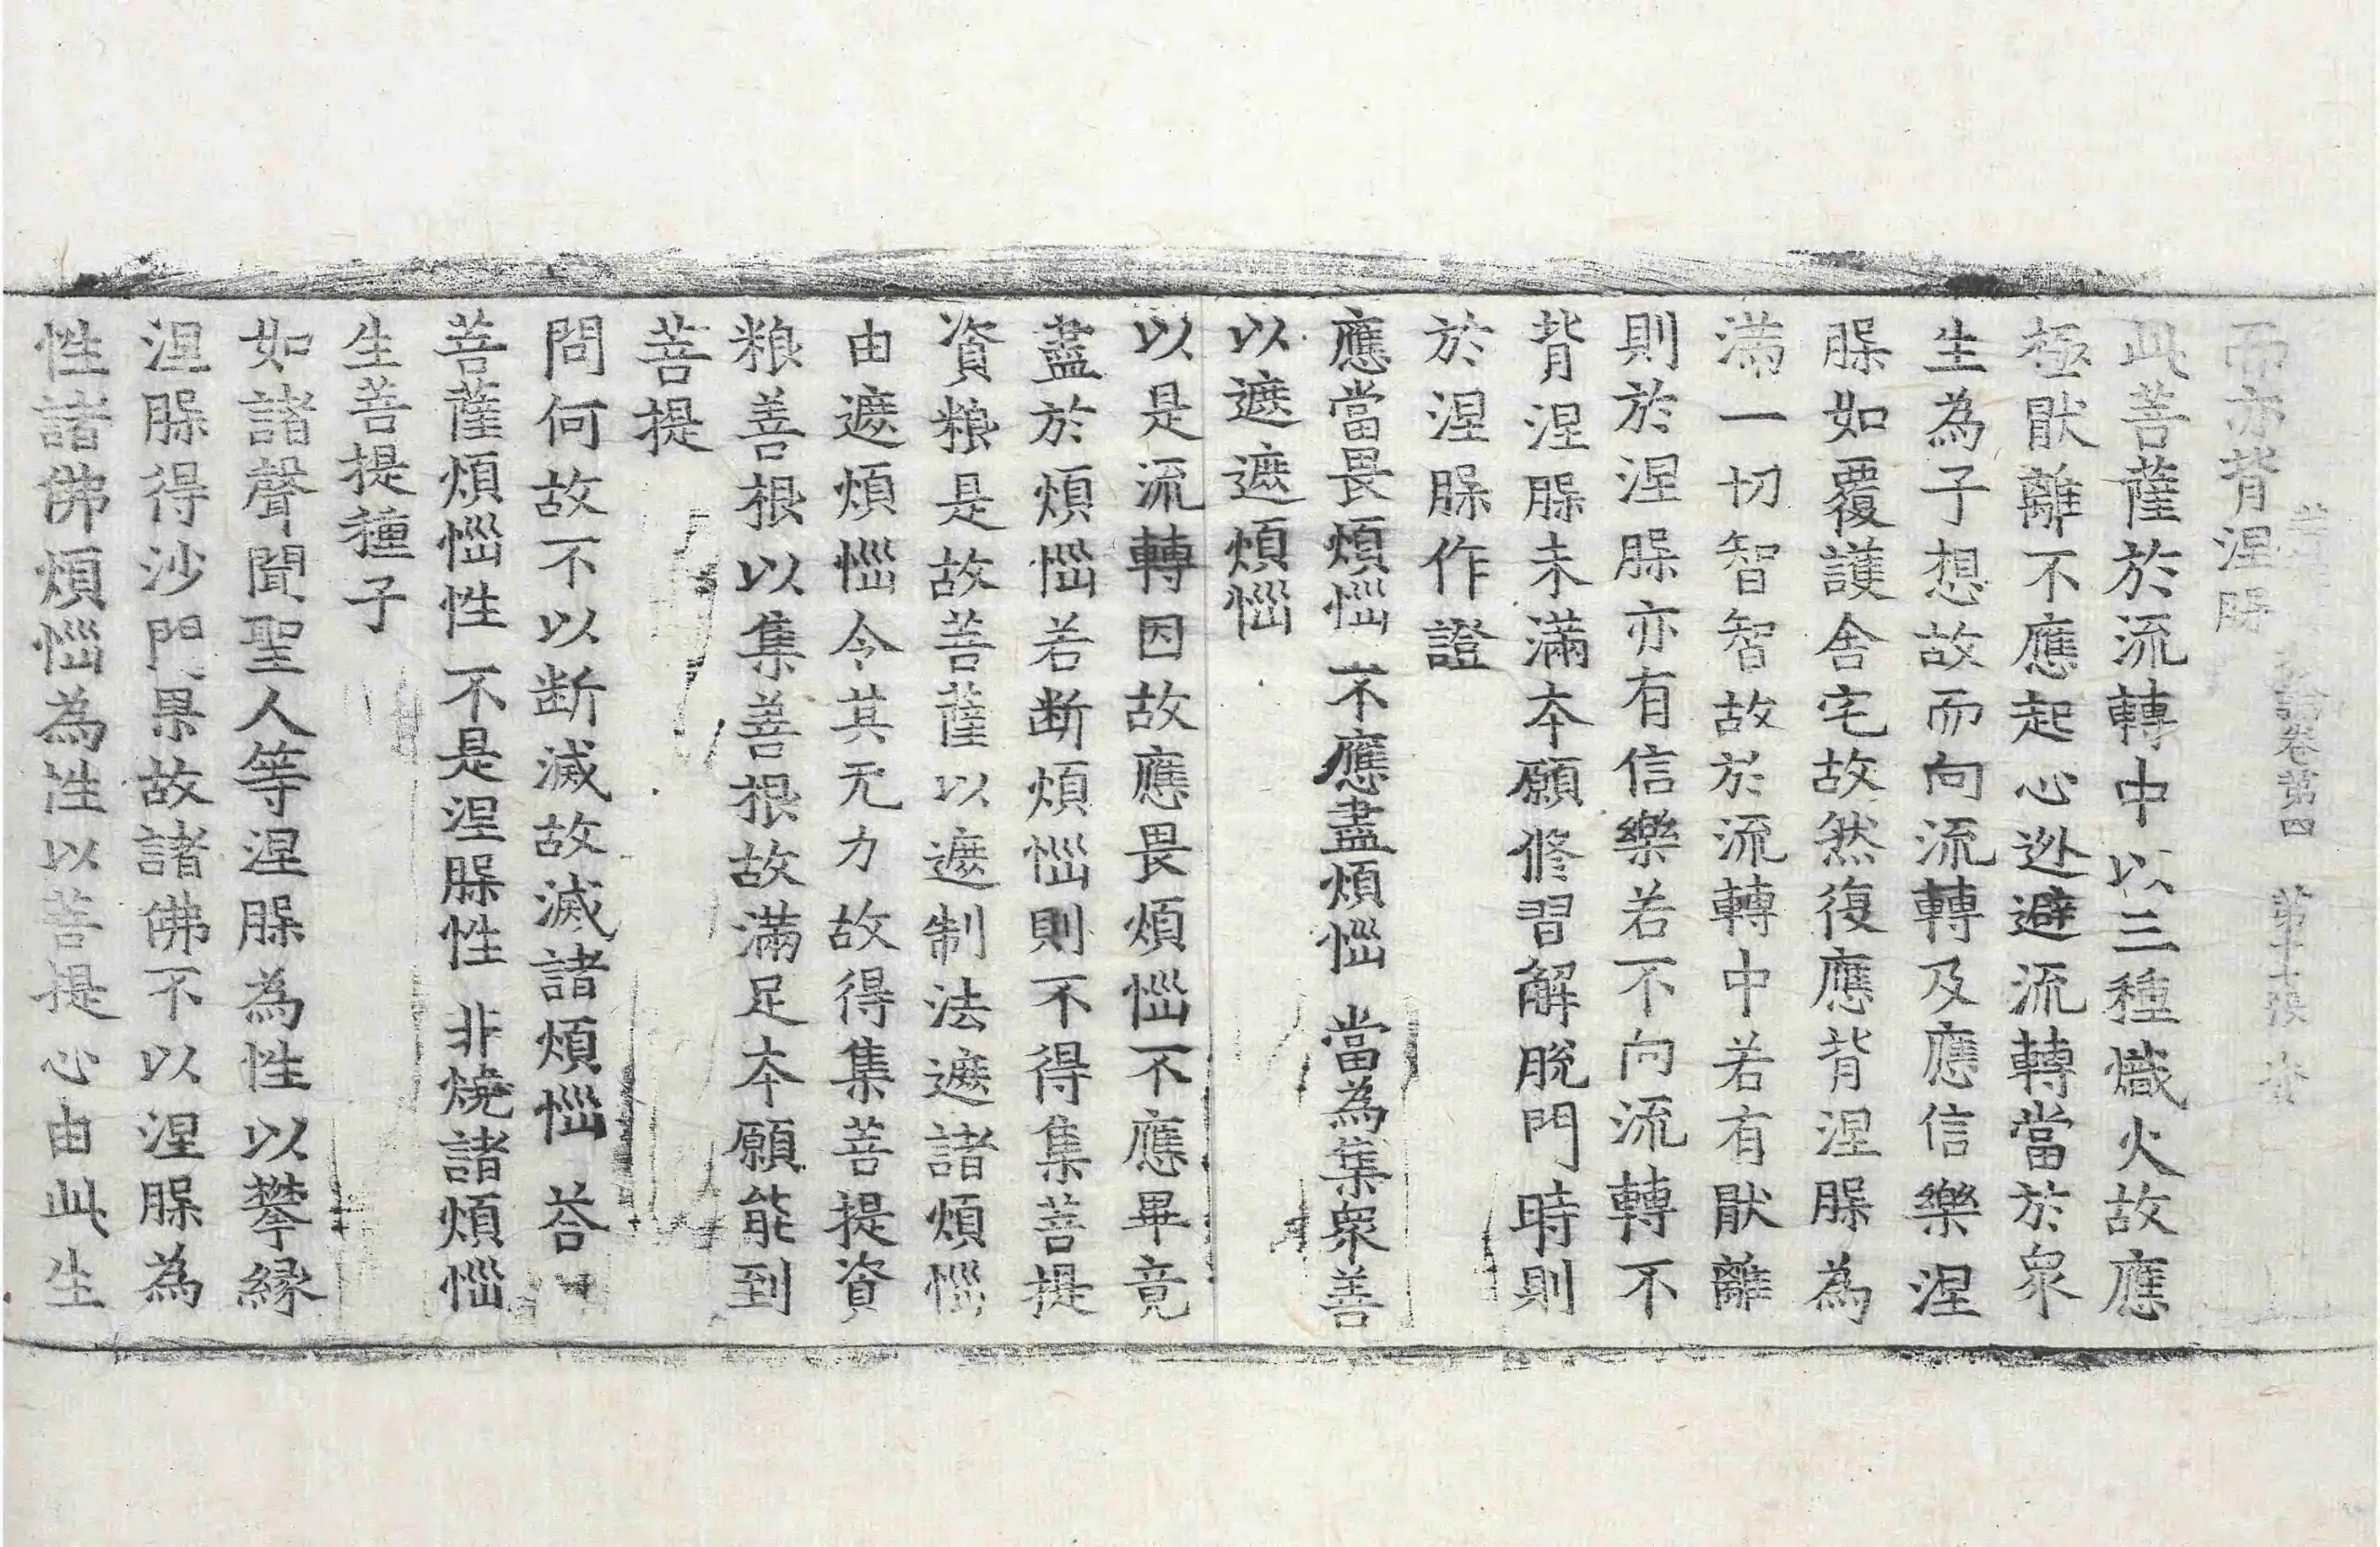 論卷第四 第十七張
而亦背涅䏶
此菩薩於流轉中以三種熾火故應
極猒離不應起心迯避流轉當於衆
生為子想故而向流轉及應信樂涅
䏶如覆護舍宅故然復應背涅䏶為
滿一切智智故於流轉中若有猒離
則於涅䏶亦有信樂若不向流轉不
背涅䏶未滿夲願修習解脫門時則
於涅䏶作證
應當畏煩惱 不應盡煩惱 當為集衆善
以遮遮煩惱
以是流轉因故應畏煩惱不應畢竟
盡於煩惱若断煩惱則不得集菩提
資粮是故菩薩以遮制法遮諸煩惱
由遮煩惱令其无力故得集菩提資
粮善根以集善根故滿足夲願能到
菩提
問何故不以断滅故滅諸煩惱 荅
菩薩煩惱性 不是涅䏶性 非燒諸煩惱
生菩提種子
如諸聲聞聖人等涅䏶為性以攀緣
涅䏶得沙門果故諸佛不以涅䏶為
性諸佛煩惱為性以菩提心由此生